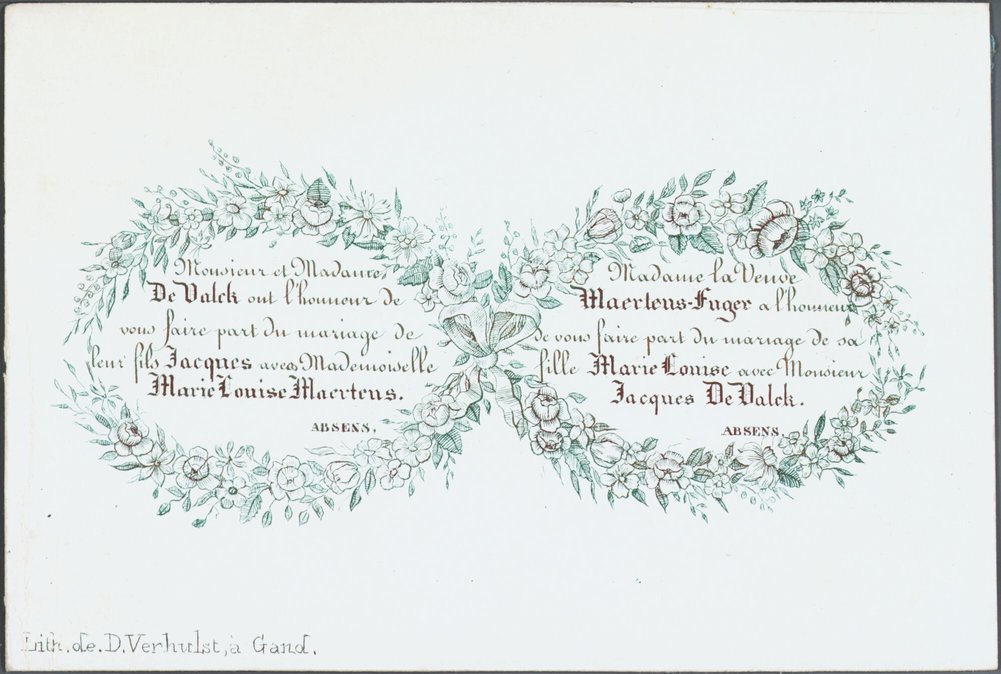 Monsieur et Madame
De Valck ont l'honneur de
vous faire part du mariage de
leur fils Jacques avec Mademoiselle
Marie Louise Maertens.
ABSENS.
Madame la Veuve
Maertens-Fuger a l'honneur
de vous faire part du mariage de sa
fille Marie Louise avec Monsieur
Jacques De Valck.
ABSENS.
Lith. de. D. Verhulst, à Gand.